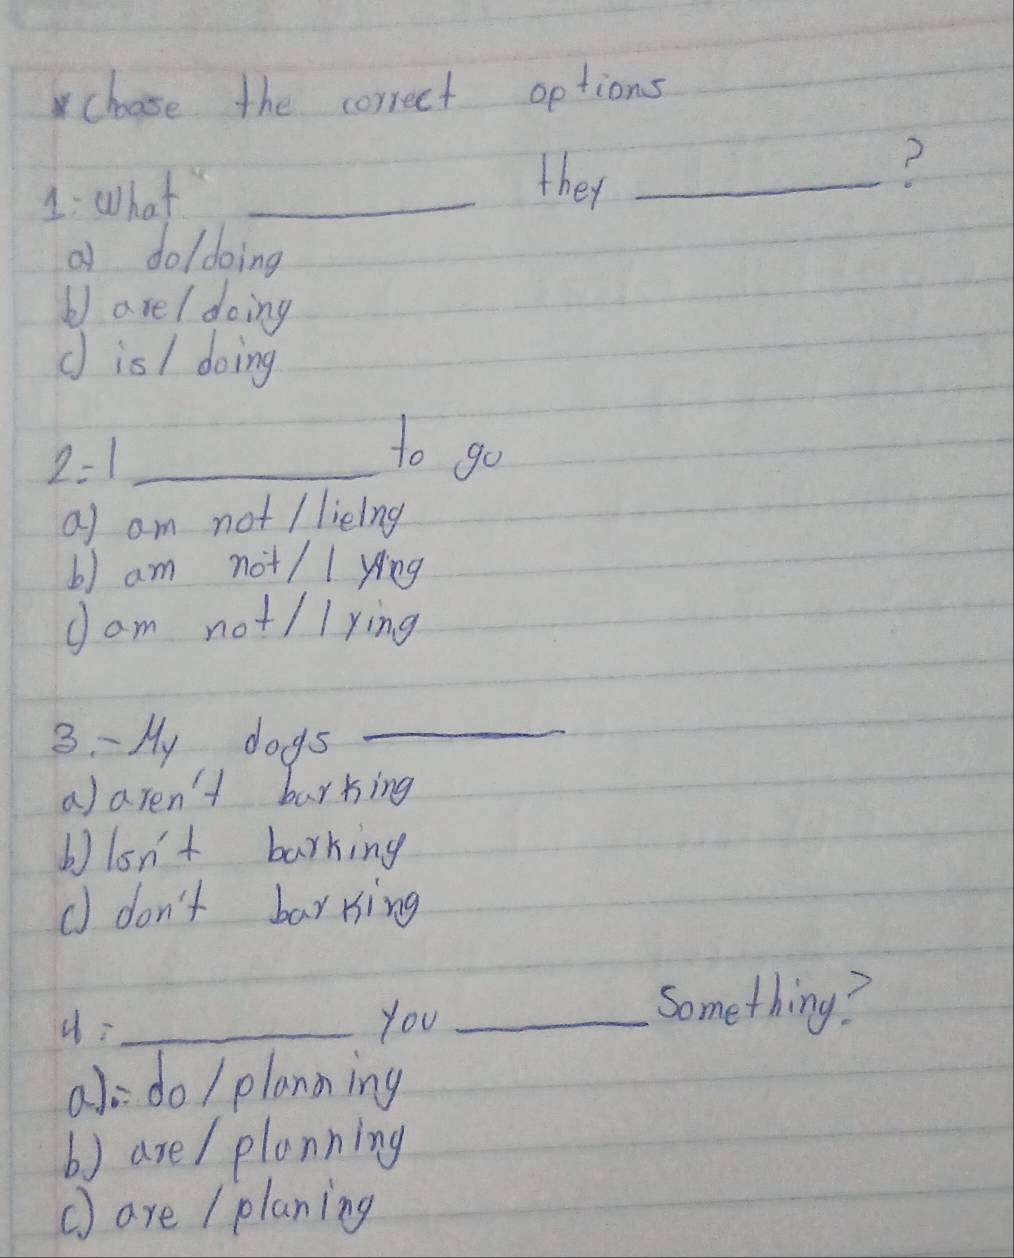 * Choose the correct options
1: What ________ they ________?
a) do/doing
b) are/doing
c) is/doing
2=I ________ to go
a) am not/lieing
b) am not/lying
c) am not/lying
3.- My dogs ________
a) aren't barking
b) Isn't barking
c) don't barking
4: ________ you ________ Something?
a):= do/planning
b) are/planning
c) are/planing